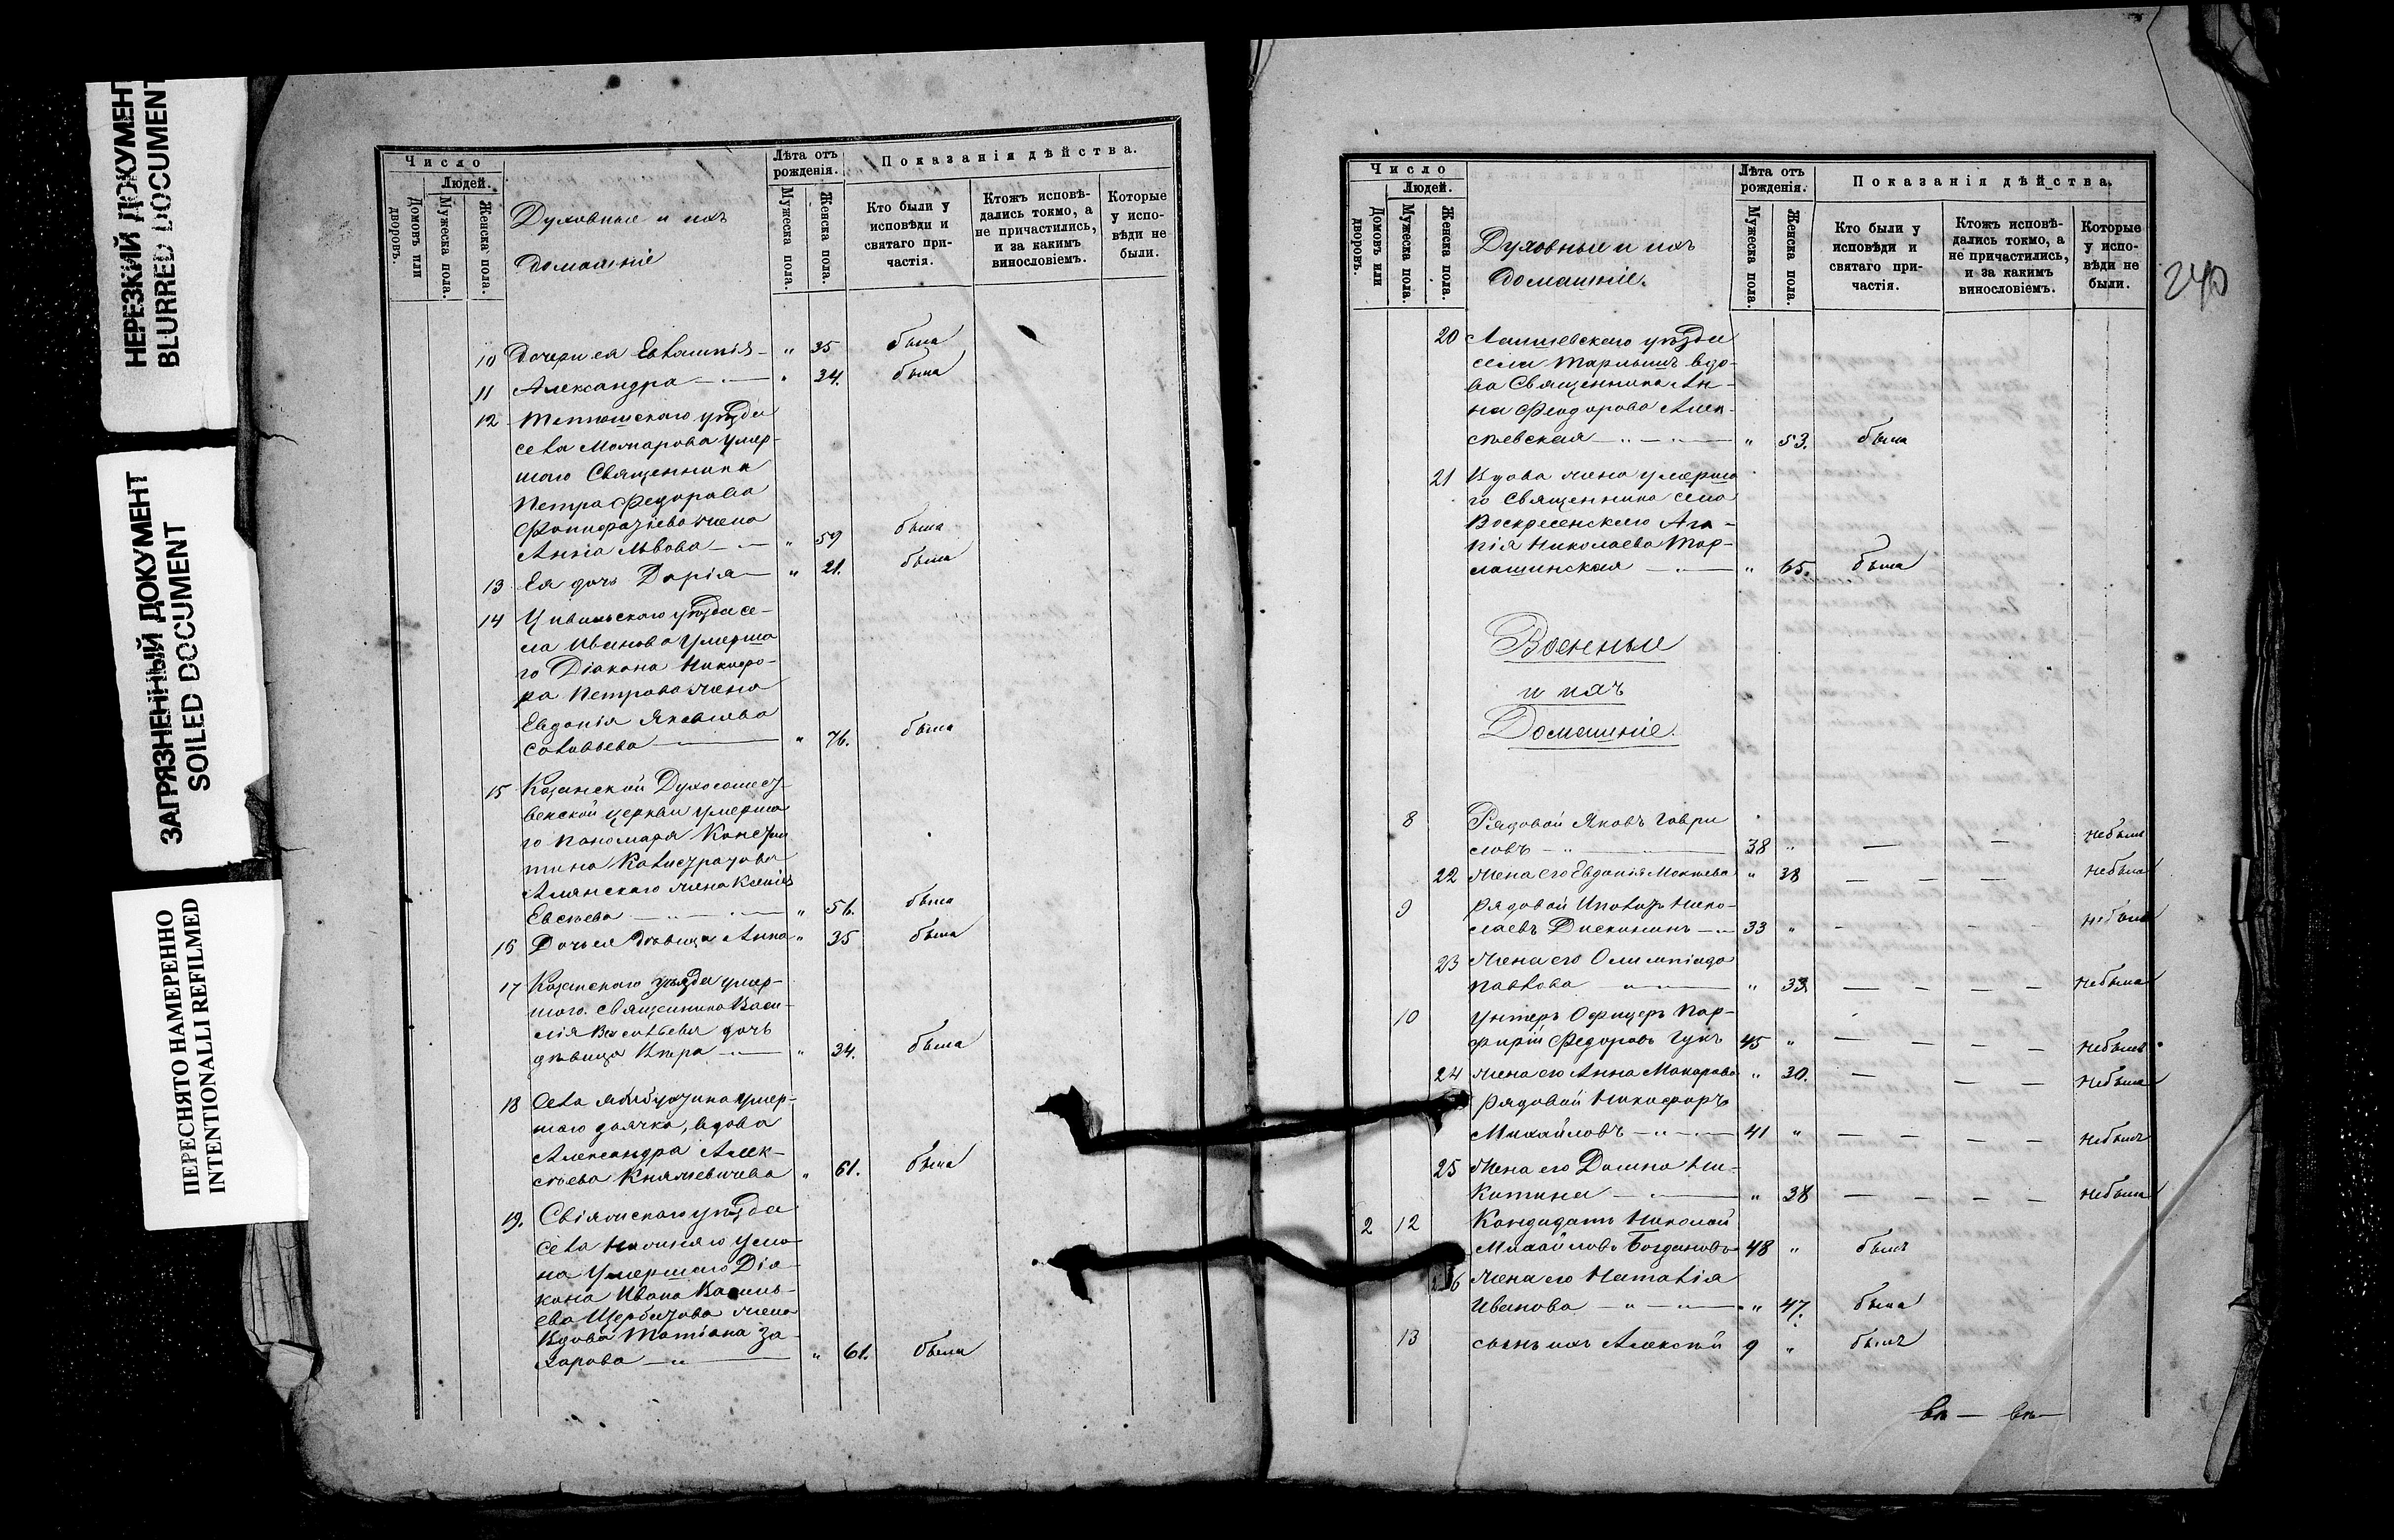 НЕРЕЗКИЙ ДОКУМЕНТ
BLURRED DOCUMENT
ЗАГРЯЗНЕННЫЙ ДОКУМЕНТ
SOILED DOCUMENT
ПЕРЕСНЯТО НАМЕРЕННО
INTENTIONALLI REFILMED
Число
Людей.
Домовъ или дворовъ.
Мужеска пола.
Женска пола.
Духовные и ихъ
домашніе
Лѣта отъ рожденія.
Мужеска пола.
Женска пола.
Показанія дѣйства.
Кто были у исповѣди и святаго причастія.
Ктожъ исповѣдались токмо, а не причастились, и за какимъ винословіемъ.
Которые у исповѣди не были.
10 Дочери ея " 35 была
11 Александра " 34. была
12 Тетюшскаго уѣзда
села умер-
шаго Священника
Петра Федорова
жена
Анна Львова " 59 была
13 Ея дочь Дарія " 21. была
14 Цивильскаго уѣзда се-
ла Иванова умерша
го Діакона Никифо-
ра Петрова жена
Евдокія Яковлева
Соловьева " 76. была
15 Казанской Духосошест
венской церкви умерша
го пономаря Констан
тина
жена Ксенія
Евсѣева " 56. была
16 Дочь ея дѣвица Анна " 35 была
17 Казанскаго уѣзда умер-
шаго священника Васи-
лія Васильева дочь
дѣвица Вѣра " 34. была
18 Села умер-
шаго дьячка, вдова
Александра Алек-
сѣева Княжевичева " 61. была
19. Свіяжскаго уѣзда
села Нижняго Усло-
на умершаго Діа
кона Ивана Василь-
ева Щербакова жена
вдова Татіана За-
харова " 61. была
240
Число
Людей.
Домовъ или дворовъ.
Мужеска пола.
Женска пола.
Духовные и ихъ
домашніе.
Лѣта отъ рожденія.
Мужеска пола.
Женска пола.
Показанія дѣйства.
Кто были у исповѣди и святаго причастія.
Ктожъ исповѣдались токмо, а не причастились, и за какимъ винословіемъ.
Которые у исповѣди не были.
20 Лаишевскаго уѣзда
села вдо-
ва Священника Ан-
на Феодорова Алек-
сѣевская " 53. была
21 Вдова жена умерша
го Священника села
Воскресенскаго Ага-
пія Николаева Тар-
лашинская " 65. была
Военные
и ихъ
Домашніе.
8 Рядовой Яковъ Гаври
ловъ 38 " — — небылъ
22 Жена его Евдокія " 38 — — — небыла
9 Рядовой Нико-
лаевъ 33 " — — — небылъ
23 Жена его Олимпіада
Павлова " 33 — — — — небыла
10 Унтеръ Офицеръ Пор-
фирій Федоровъ Гукъ 45 " — — — — небылъ
24 Жена его Анна Макарова " 30. — — — небыла
Рядовой Никифоръ
Михайловъ 41 " — — — — небылъ
25 Жена его Домна Ни-
китина " 38 — — — — небыла
2 12 Кандидатъ Николай
Михайловъ Богдановъ 48 " былъ
6 Жена его Наталія
Иванова " 47. была
13 сынъ ихъ Алексѣй 9 " былъ